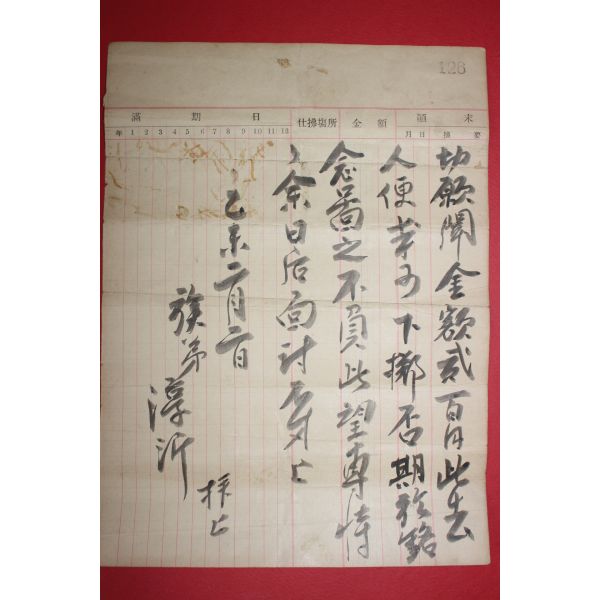 126
滿期日 仕拂塲所 金額 顚末
年 1 2 3 4 5 6 7 8 9 10 11 12 月 日 摘要
切願聞金額貳百円此去
人便幸爲下擲否期於銘
念圖之不負此望專恃
〻余日后面討 上
乙未二月二日
族弟淳沂
拜上